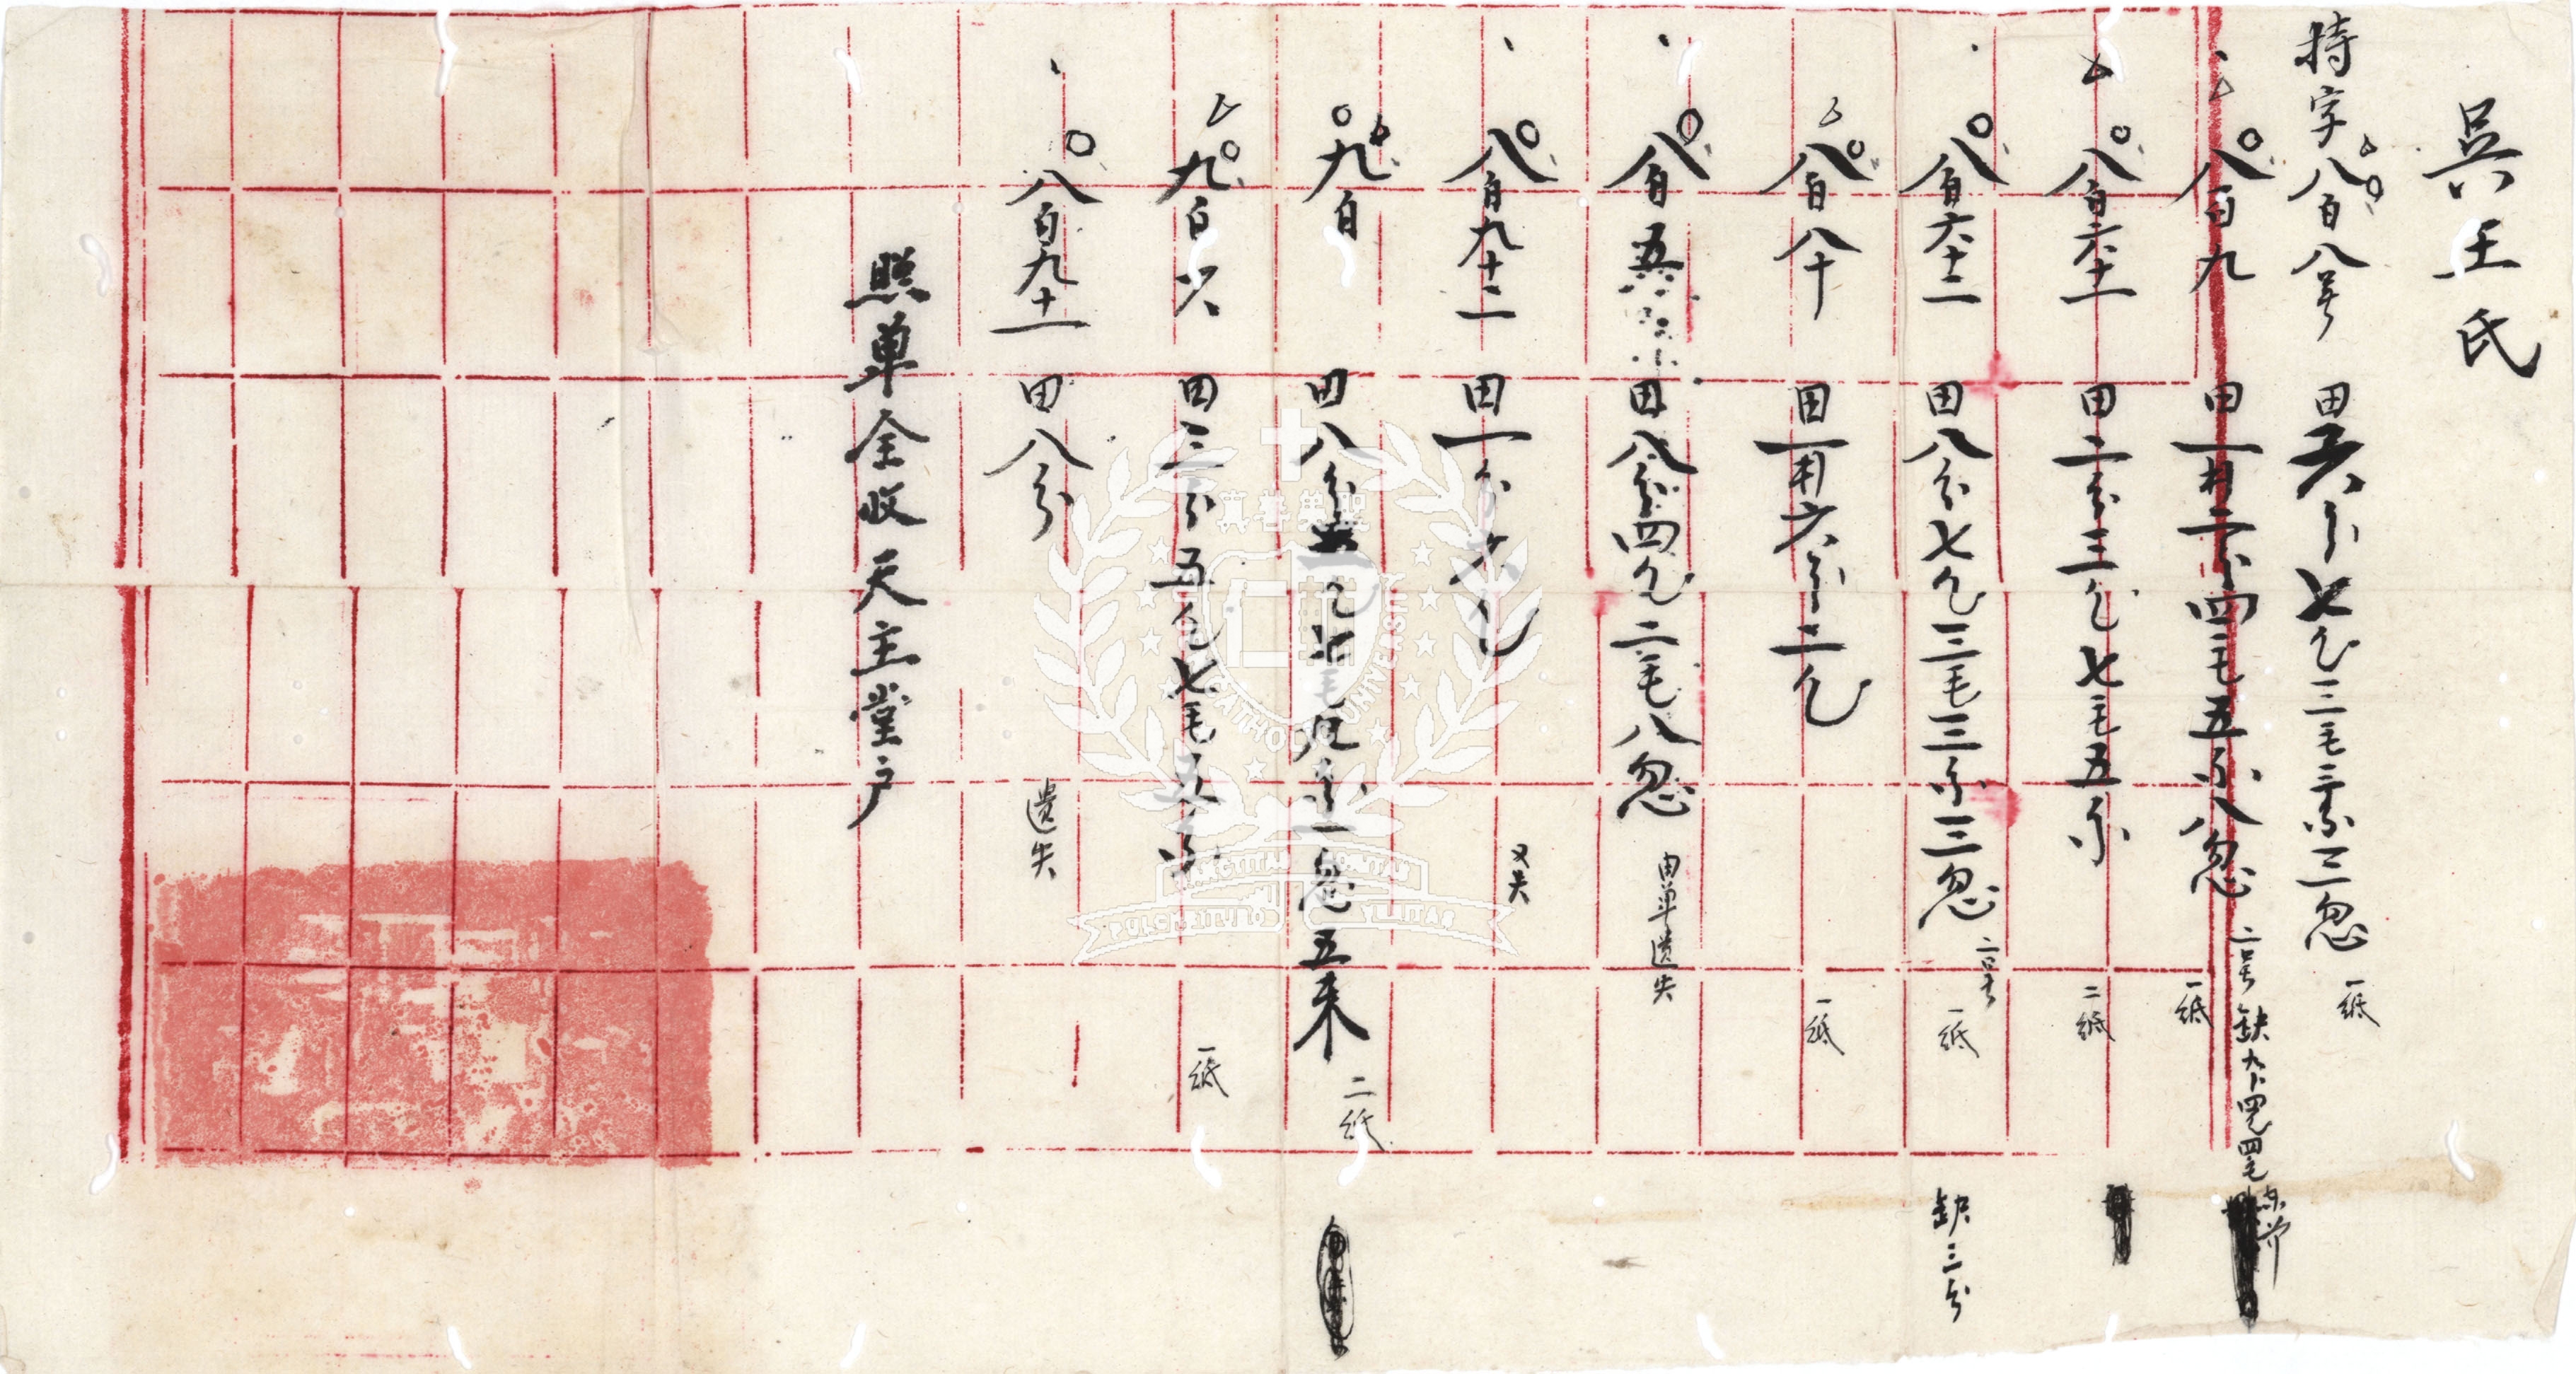 吳王氏
持字八百八号 田六分七厘三毛三糸三忽 一纸
八百九 田一畝二分四毛五糸八忽 二号 缺九分四厘四毛 一纸
八百六十一 田二分三厘七毛五糸 二纸
八百六十二 田八分七厘三毛三糸三忽 二号 一纸 缺三分
八百八十 田一畝六分二厘 一纸
八百五 田八分四厘二毛八忽 由单遗失
八百九十二 田一分六厘 又失
九百 田八分 厘 毛 糸一忽五末 二纸
九百六 田三分五厘七毛五糸 一纸
八百九十一 田八分 遗失
照单全收天主堂户
真善美聖
CATHOLIC UNIVERSITY